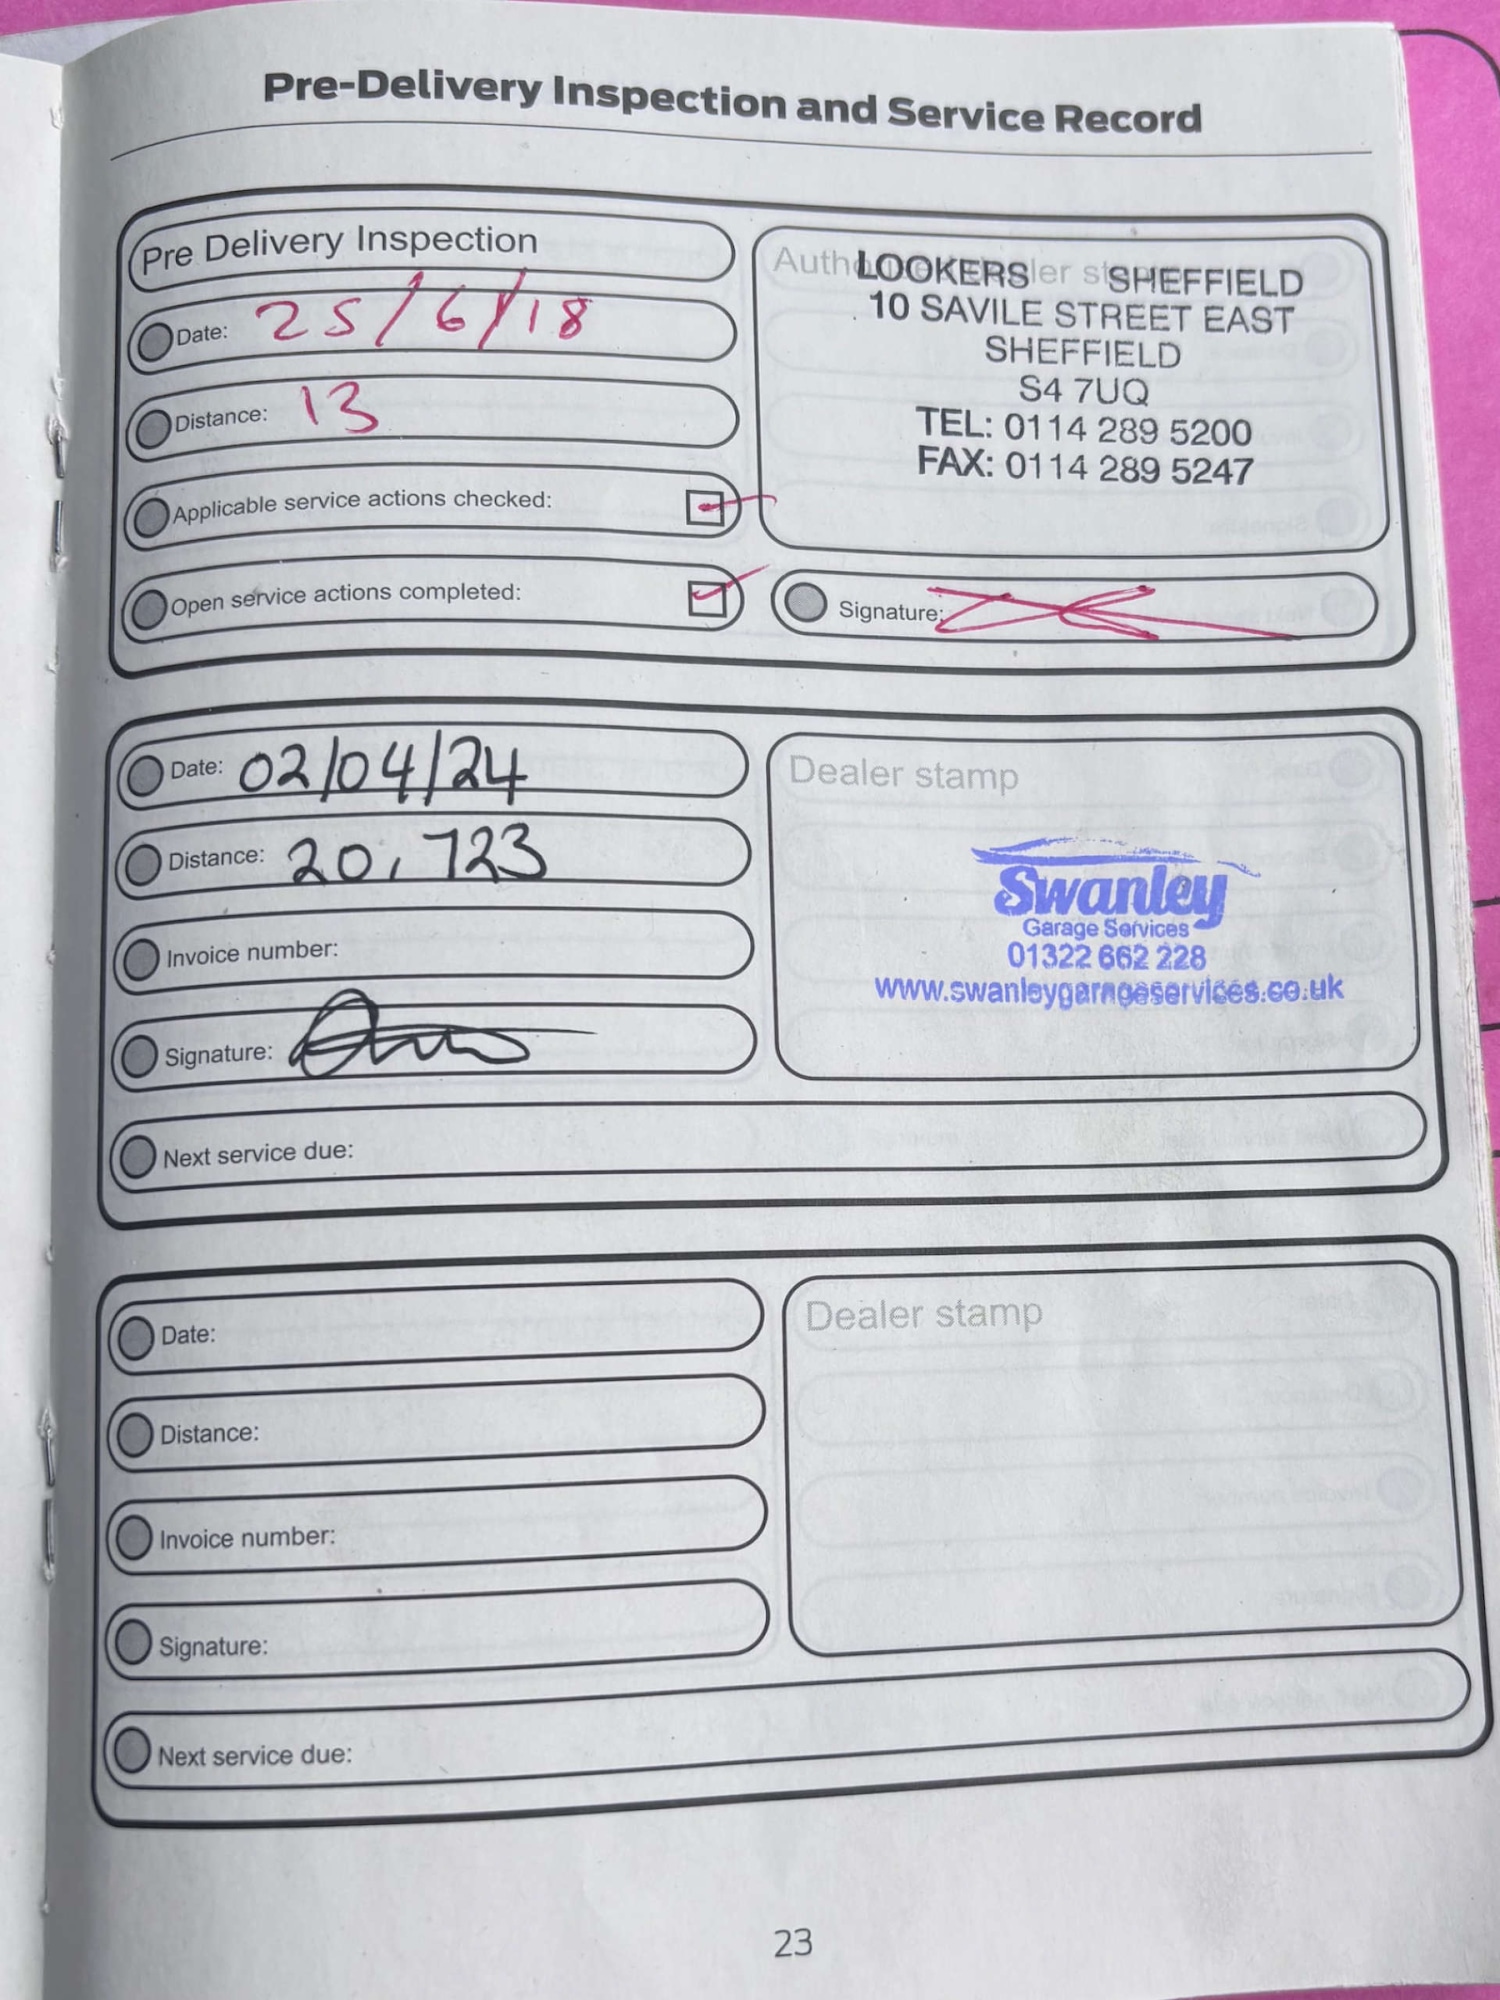 Pre-Delivery Inspection and Service Record
Pre Delivery Inspection
Date: 25/6/18
Distance: 13
Applicable service actions checked:
Open service actions completed:
LOOKERS SHEFFIELD
10 SAVILE STREET EAST
SHEFFIELD
S4 7UQ
TEL: 0114 289 5200
FAX: 0114 289 5247
Signature:
Date: 02/04/24
Distance: 20,723
Invoice number:
Signature:
Next service due:
Dealer stamp
Swanley
Garage Services
01322 662 228
www.swanleygarageservices.co.uk
Date:
Distance:
Invoice number:
Signature:
Next service due:
Dealer stamp
23